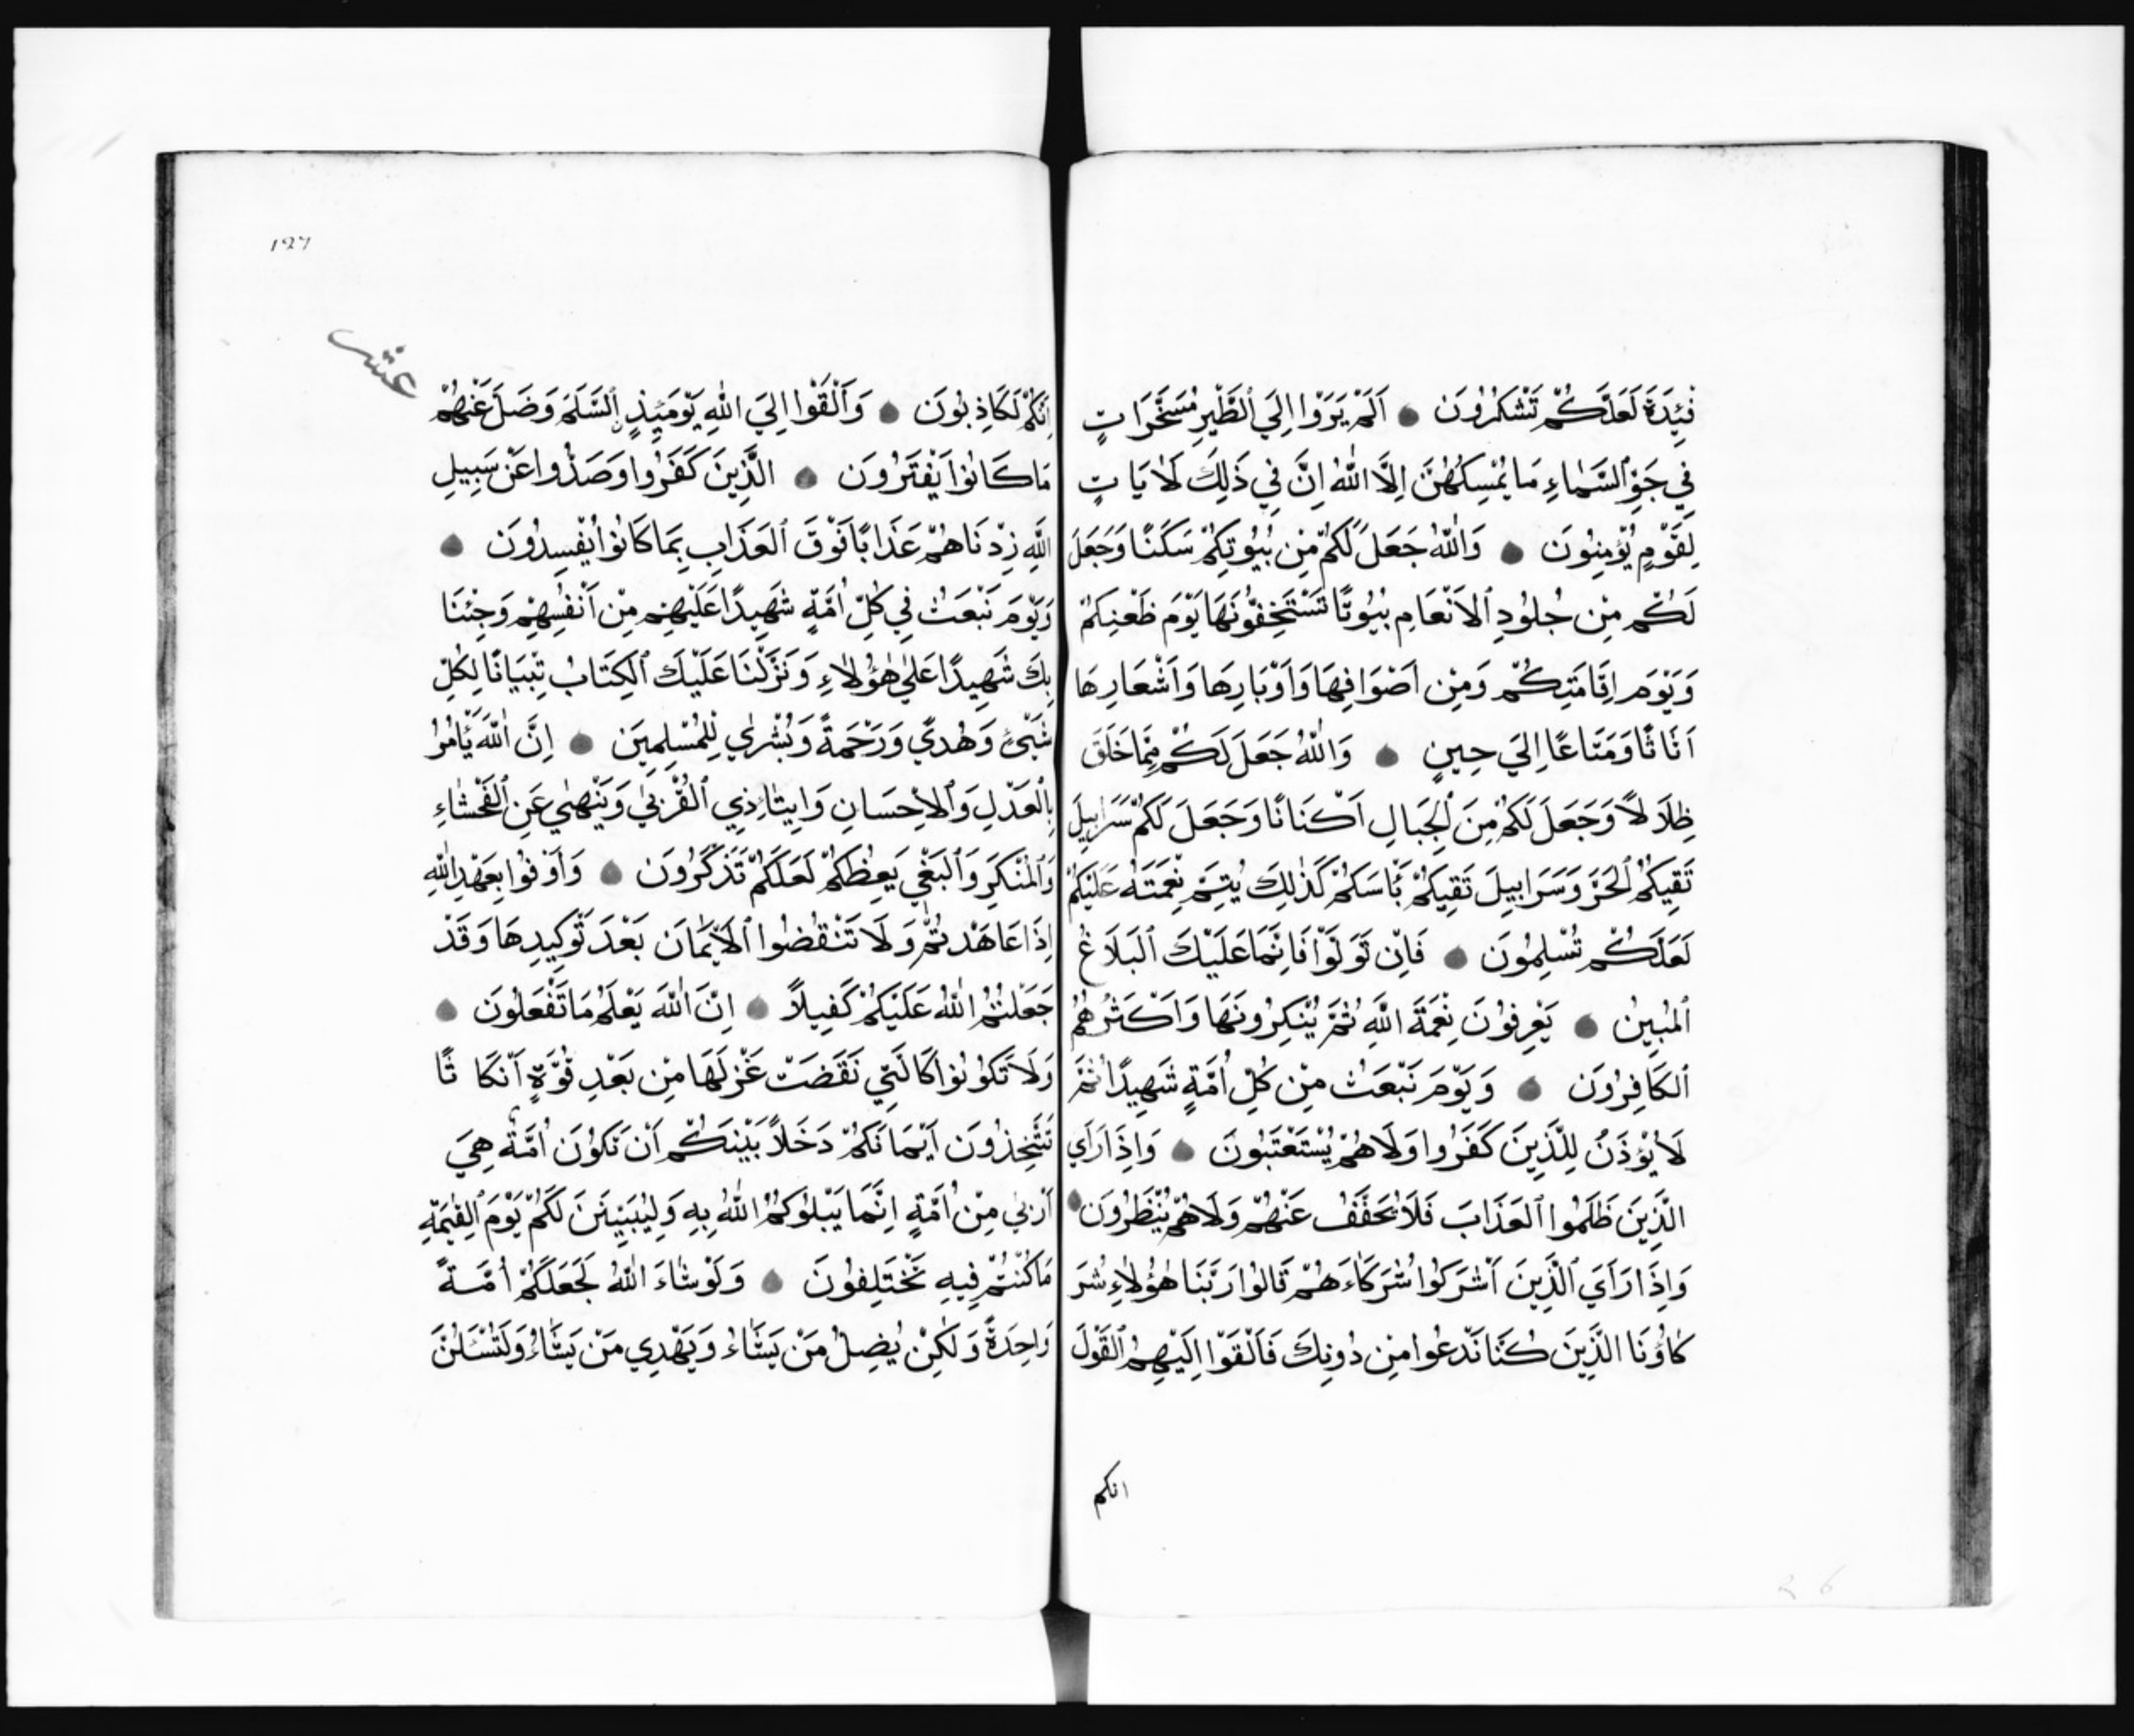 فْئِدَةَ لَعَلَّكُمْ تَشْكُرُونَ اَلَمْ يَرَوْا اِلَي الطَّيْرِ مُسَخَّرَاتٍ
فِي جَوِّ السَّمَاءِ مَا يُمْسِكُهُنَّ اِلَّا اللّٰهُ اِنَّ فِي ذَلِكَ لَاٰيَاتٍ
لِقَوْمٍ يُؤْمِنُونَ وَاللّٰهُ جَعَلَ لَكُمْ مِنْ بُيُوتِكُمْ سَكَنًا وَجَعَلَ
لَكُمْ مِنْ جُلُودِ الْاَنْعَامِ بُيُوتًا تَسْتَخِفُّونَهَا يَوْمَ ظَعْنِكُمْ
وَيَوْمَ اِقَامَتِكُمْ وَمِنْ اَصْوَافِهَا وَاَوْبَارِهَا وَاَشْعَارِهَا
اَثَاثًا وَمَتَاعًا اِلَيَ حِينٍ وَاللّٰهُ جَعَلَ لَكُمْ مِمَّا خَلَقَ
ظِلَالًا وَجَعَلَ لَكُمْ مِنَ الْجِبَالِ اَكْنَانًا وَجَعَلَ لَكُمْ سَرَابِيلَ
تَقِيكُمُ الْحَرَّ وَسَرَابِيلَ تَقِيكُمْ بَأْسَكُمْ كَذٰلِكَ يُتِمُّ نِعْمَتَهُ عَلَيْكُمْ
لَعَلَّكُمْ تُسْلِمُونَ فَاِنْ تَوَلَّوْا فَاِنَّمَا عَلَيْكَ الْبَلَاغُ
الْمُبِينُ يَعْرِفُونَ نِعْمَةَ اللّٰهِ ثُمَّ يُنْكِرُونَهَا وَاَكْثَرُهُمُ
الْكَافِرُونَ وَيَوْمَ نَبْعَثُ مِنْ كُلِّ اُمَّةٍ شَهِيدًا ثُمَّ
لَا يُؤْذَنُ لِلَّذِينَ كَفَرُوا وَلَا هُمْ يُسْتَعْتَبُونَ وَاِذَا رَاَي
الَّذِينَ ظَلَمُوا الْعَذَابَ فَلَا يُخَفَّفُ عَنْهُمْ وَلَا هُمْ يُنْظَرُونَ
وَاِذَا رَاَيَ الَّذِينَ اَشْرَكُوا شُرَكَاءَهُمْ قَالُوا رَبَّنَا هٰؤُلَاءِ شُرَ
كَاؤُنَا الَّذِينَ كُنَّا نَدْعُوا مِنْ دُونِكَ فَاَلْقَوْا اِلَيْهِمُ الْقَوْلَ
انكم
١٢٧
عشر
اِنَّكُمْ لَكَاذِبُونَ وَاَلْقَوْا اِلَيَ اللّٰهِ يَوْمَئِذٍ السَّلَمَ وَضَلَّ عَنْهُمْ
مَا كَانُوا يَفْتَرُونَ الَّذِينَ كَفَرُوا وَصَدُّوا عَنْ سَبِيلِ
اللّٰهِ زِدْنَاهُمْ عَذَابًا فَوْقَ الْعَذَابِ بِمَا كَانُوا يُفْسِدُونَ
وَيَوْمَ نَبْعَثُ فِي كُلِّ اُمَّةٍ شَهِيدًا عَلَيْهِمْ مِنْ اَنْفُسِهِمْ وَجِئْنَا
بِكَ شَهِيدًا عَلٰي هٰؤُلَاءِ وَنَزَّلْنَا عَلَيْكَ الْكِتَابَ تِبْيَانًا لِكُلِّ
شَيْءٍ وَهُدًي وَرَحْمَةً وَبُشْرٰي لِلْمُسْلِمِينَ اِنَّ اللّٰهَ يَأْمُرُ
بِالْعَدْلِ وَالْاِحْسَانِ وَاِيتَاءِ ذِي الْقُرْبٰي وَيَنْهٰي عَنِ الْفَحْشَاءِ
وَالْمُنْكَرِ وَالْبَغْيِ يَعِظُكُمْ لَعَلَّكُمْ تَذَكَّرُونَ وَاَوْفُوا بِعَهْدِ اللّٰهِ
اِذَا عَاهَدْتُمْ وَلَا تَنْقُضُوا الْاَيْمَانَ بَعْدَ تَوْكِيدِهَا وَقَدْ
جَعَلْتُمُ اللّٰهَ عَلَيْكُمْ كَفِيلًا اِنَّ اللّٰهَ يَعْلَمُ مَا تَفْعَلُونَ
وَلَا تَكُونُوا كَالَّتِي نَقَضَتْ غَزْلَهَا مِنْ بَعْدِ قُوَّةٍ اَنْكَاثًا
تَتَّخِذُونَ اَيْمَانَكُمْ دَخَلًا بَيْنَكُمْ اَنْ تَكُونَ اُمَّةٌ هِيَ
اَرْبٰي مِنْ اُمَّةٍ اِنَّمَا يَبْلُوكُمُ اللّٰهُ بِهِ وَلِيُبَيِّنَنَّ لَكُمْ يَوْمَ الْقِيٰمَةِ
مَا كُنْتُمْ فِيهِ تَخْتَلِفُونَ وَلَوْ شَاءَ اللّٰهُ لَجَعَلَكُمْ اُمَّةً
وَاحِدَةً وَلٰكِنْ يُضِلُّ مَنْ يَشَاءُ وَيَهْدِي مَنْ يَشَاءُ وَلَتُسْـَٔلُنَّ